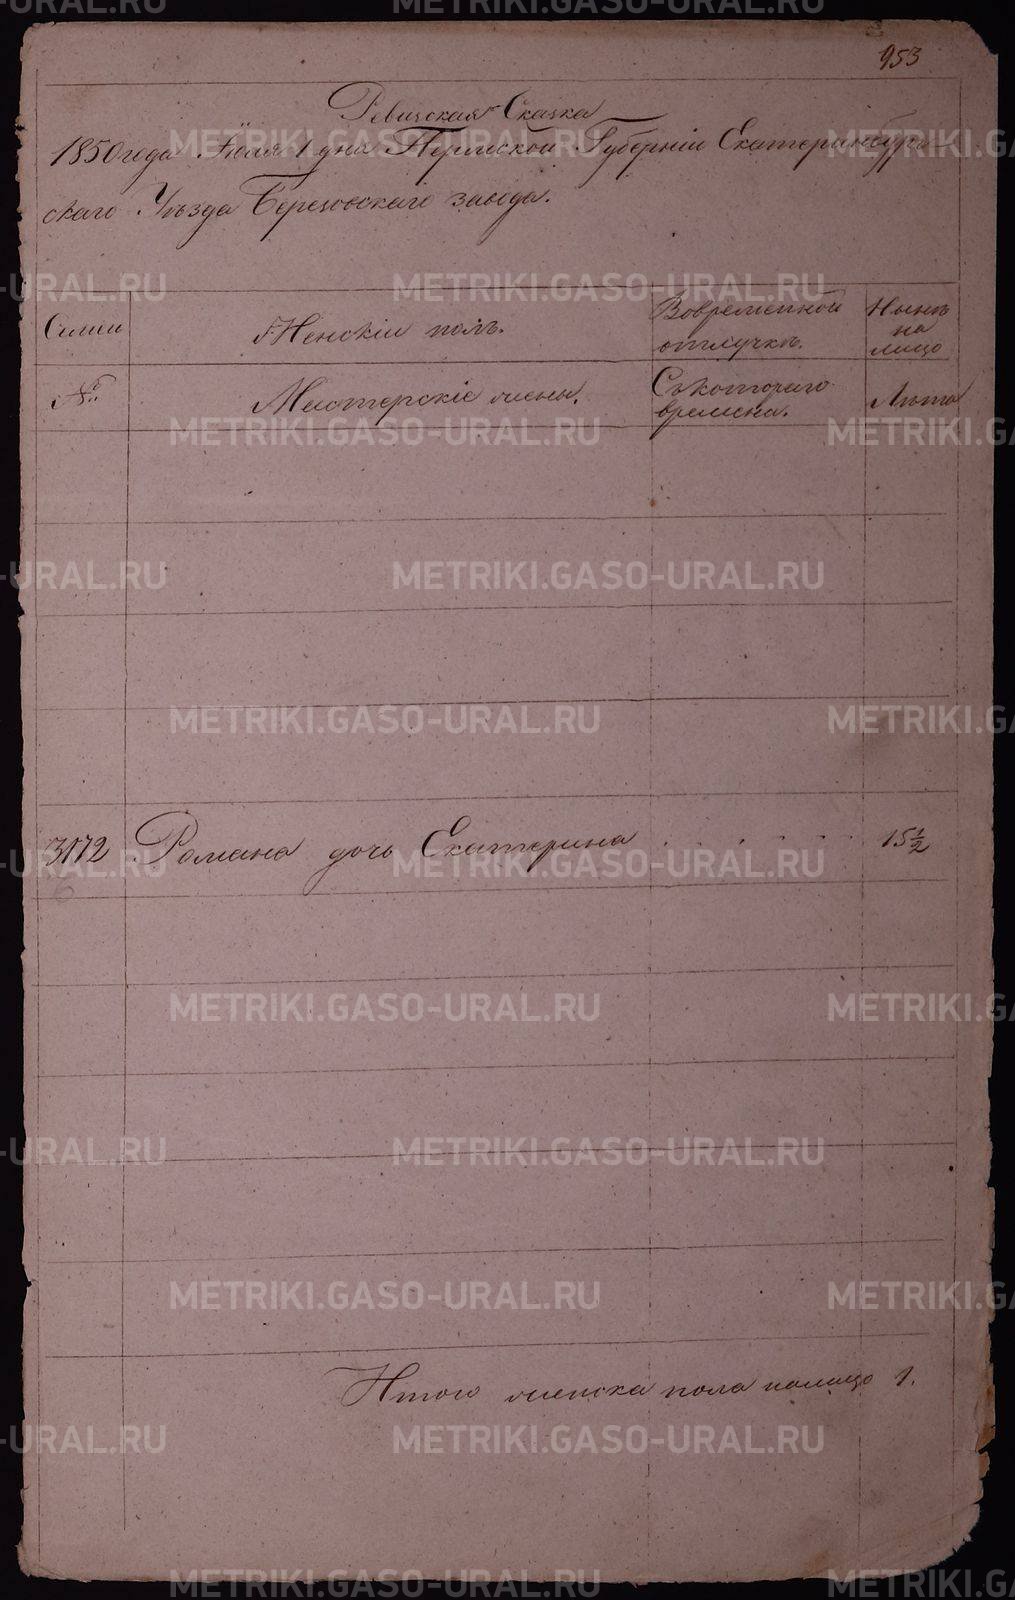 953
Ревизская Сказка
1850 года Іюля 1 дня Пермской Губерніи Екатеринбург-
скаго Уѣзда Березовскаго завода.
Семьи
Женскій полъ.
Вовременной
отлучкѣ.
Нынѣ
на
лицо
№
Мастерскіе жены.
Съкотораго
времена.
Лѣта
3172
Романа дочь Екатерина . . . . . . . 15 1/2
6
Итого женска пола налицо 1.
METRIKI.GASO-URAL.RU